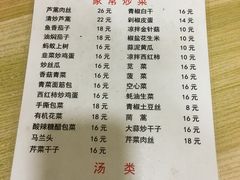 家常炒菜
芦蒿肉丝 26元
清炒芦蒿 22元
鱼香茄子 16元
油焖茄子 16元
蚂蚁上树 16元
韭菜炒鸡蛋 16元
炒丝瓜 16元
香菇青菜 16元
青菜面筋包 16元
西红柿炒鸡蛋 16元
手撕包菜 16元
有机花菜 18元
酸辣糖醋包菜 16元
马兰头 16元
芹菜干子 16元
青椒白干 16元
剁椒皮蛋 14元
凉拌金针菇 10元
椒盐花生米 10元
蒜泥黄瓜 10元
凉拌西红柿 10元
菠菜 16元
苋菜 16元
空心菜 16元
蚝油生菜 16元
青椒土豆丝 16元
茼蒿 16元
大蒜炒干子 16元
芹菜肉丝 18元
汤类